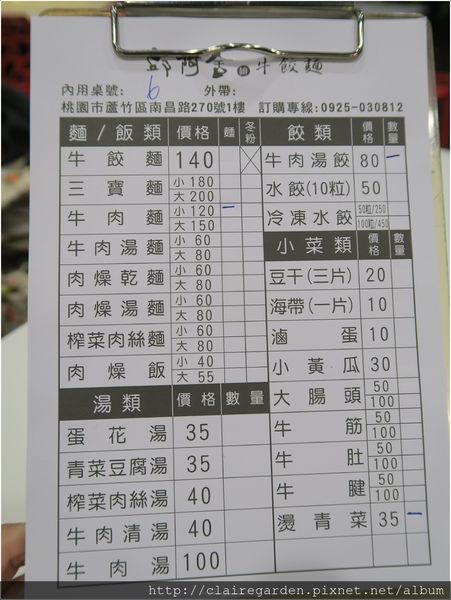 邱阿舍 牛餃麵
內用桌號: 6 外帶:
桃園市蘆竹區南昌路270號1樓 訂購專線:0925-030812
麵/飯類 價格 麵 冬粉
牛餃麵 140
三寶麵 小180 大200
牛肉麵 小120 大150
牛肉湯麵 小60 大80
肉燥乾麵 小60 大80
肉燥湯麵 小60 大80
榨菜肉絲麵 小60 大80
肉燥飯 小40 大55
湯類 價格 數量
蛋花湯 35
青菜豆腐湯 35
榨菜肉絲湯 40
牛肉清湯 40
牛肉湯 100
餃類 價格 數量
牛肉湯餃 80
水餃(10粒) 50
冷凍水餃 50粒/250 100粒/450
小菜類 價格 數量
豆干(三片) 20
海帶(一片) 10
滷蛋 10
小黃瓜 30
大腸頭 50 100
牛筋 50 100
牛肚 50 100
牛腱 50 100
燙青菜 35
http://clairegarden.pixnet.net/album